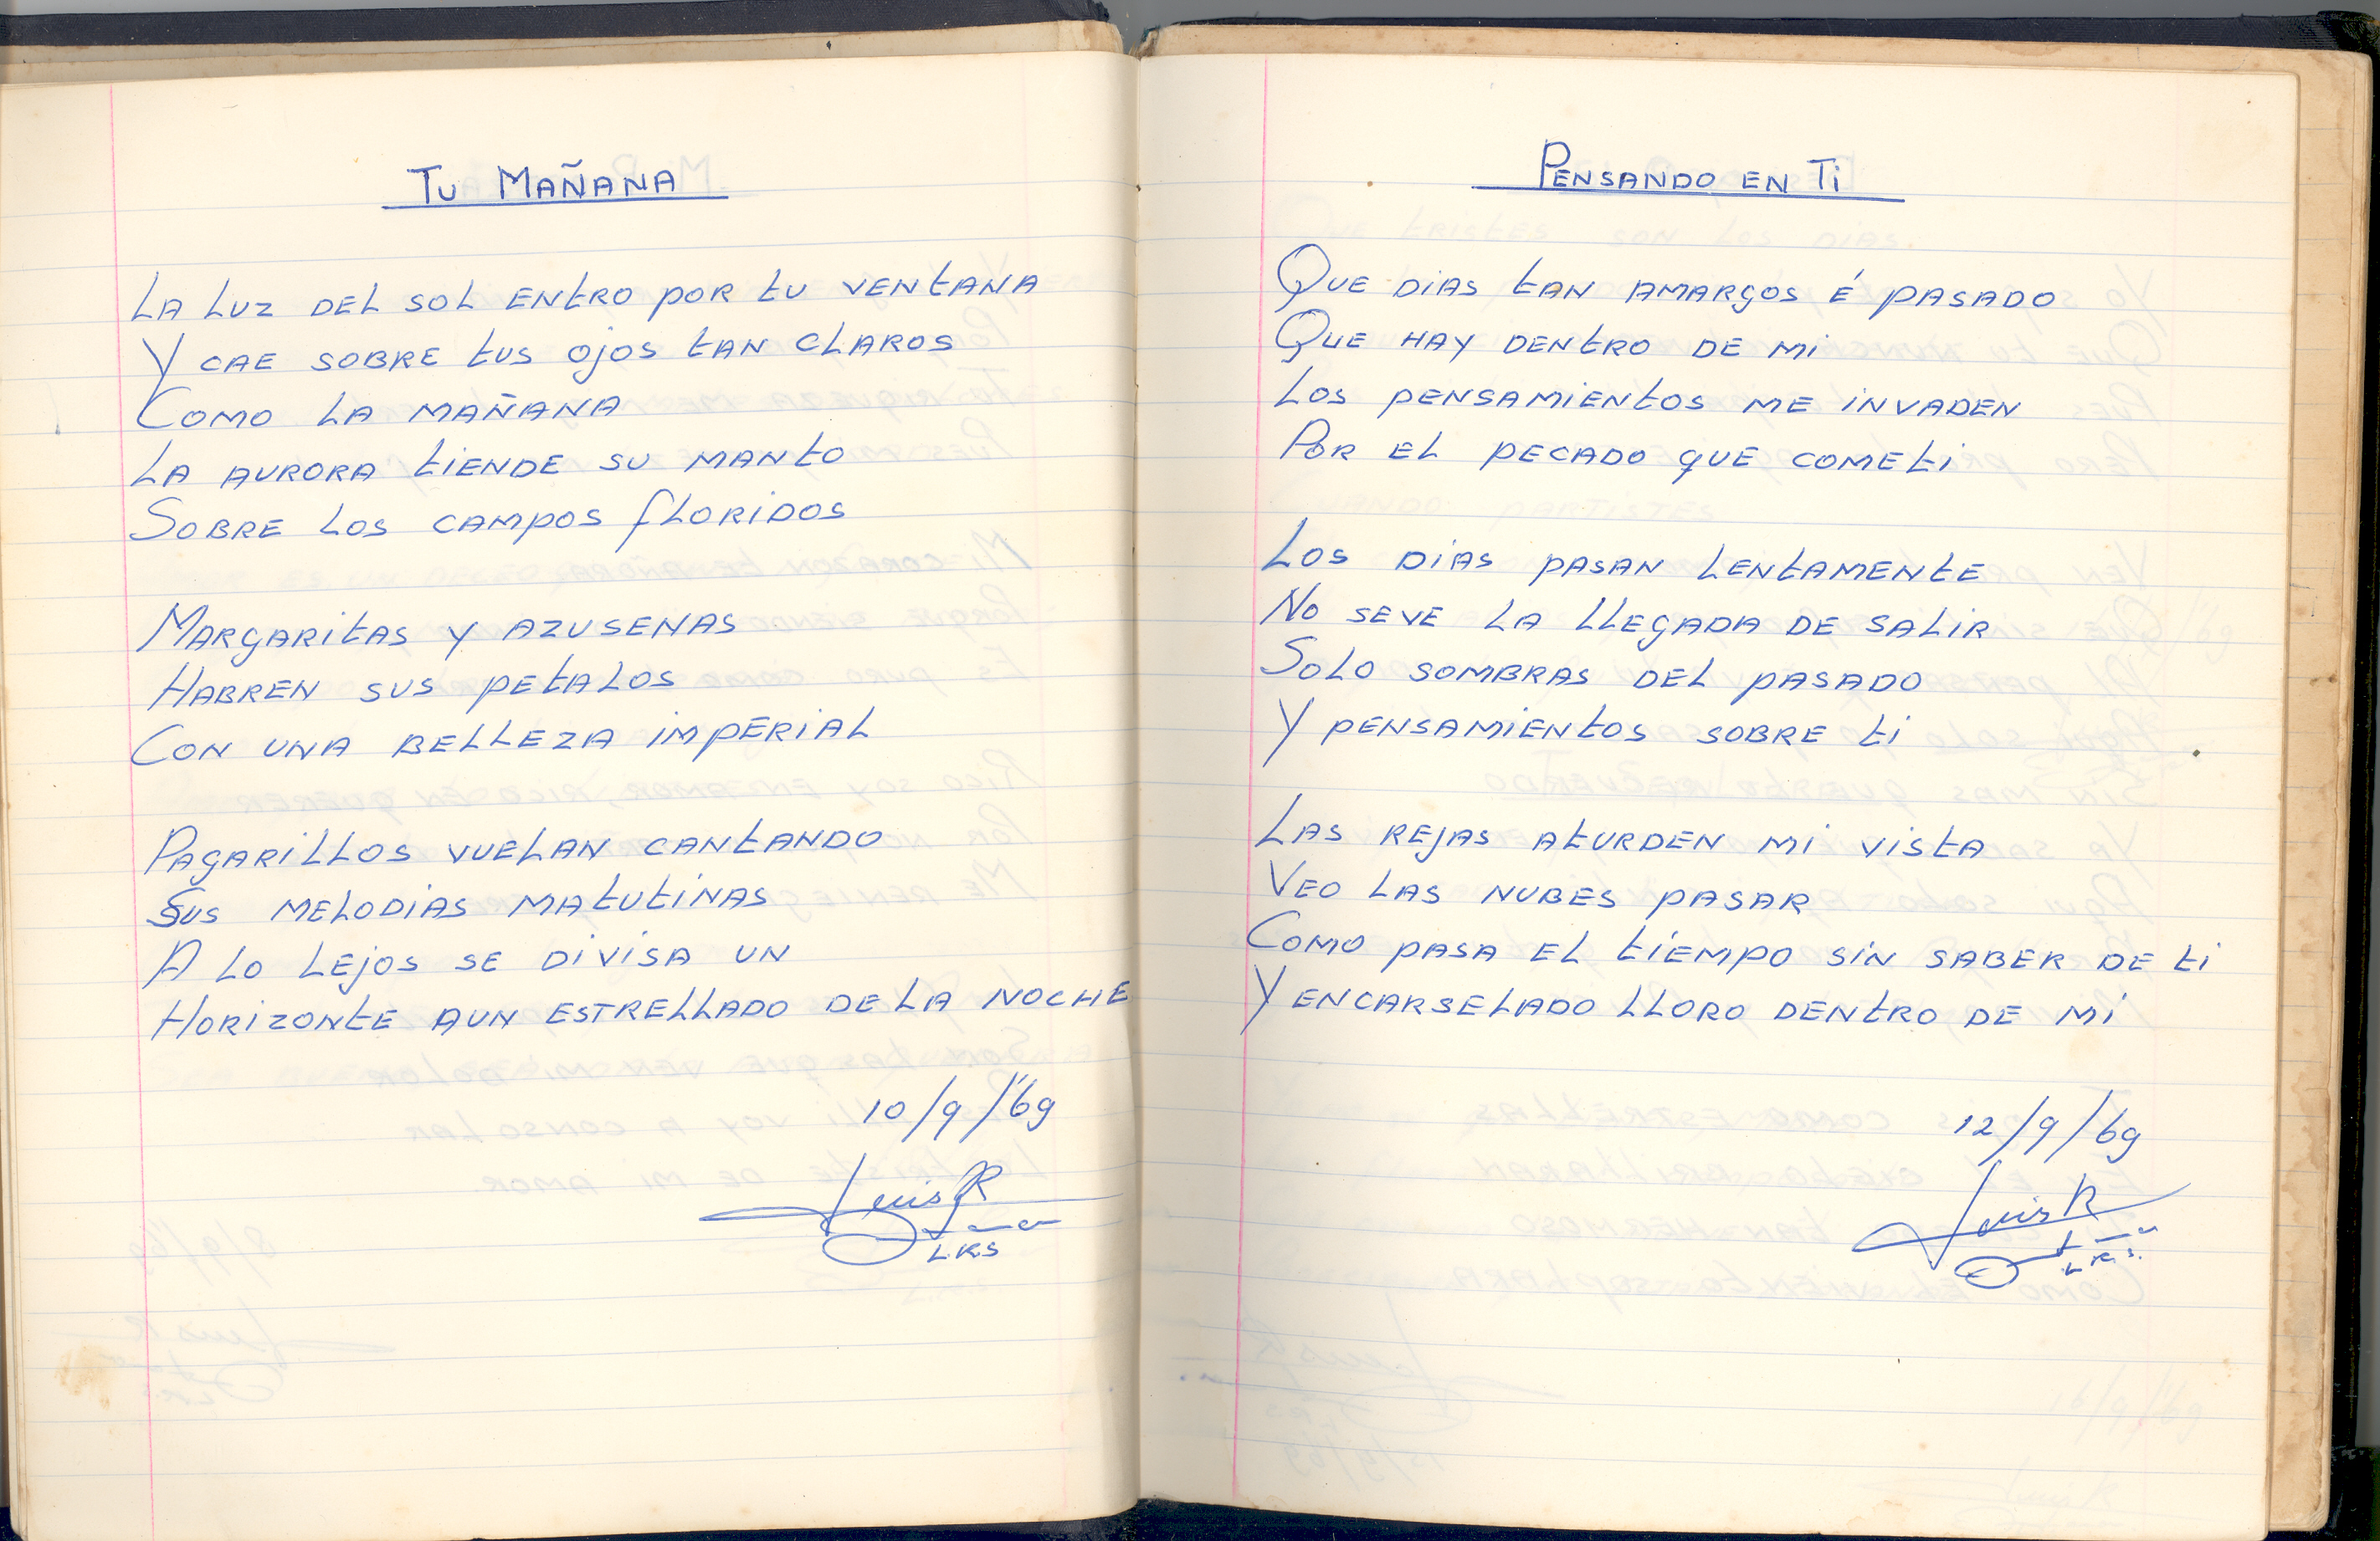 Tu Mañana
La luz del sol entro por tu ventana
Y cae sobre tus ojos tan claros
Como la mañana
La aurora tiende su manto
Sobre los campos floridos
Margaritas y azusenas
Habren sus petalos
Con una belleza imperial
Pagarillos vuelan cantando
Sus melodias matutinas
A lo lejos se divisa un
Horizonte aun estrellado de la noche
10/9/69
Luis R
L.R.S
Pensando en Ti
Que dias tan amargos é pasado
Que hay dentro de mi
Los pensamientos me invaden
Por el pecado que cometi
Los dias pasan lentamente
No seve la llegada de salir
Solo sombras del pasado
Y pensamientos sobre ti
Las rejas aturden mi vista
Veo las nubes pasar
Como pasa el tiempo sin saber de ti
Y encarselado lloro dentro de mi
12/9/69
Luis R
L.R.S.